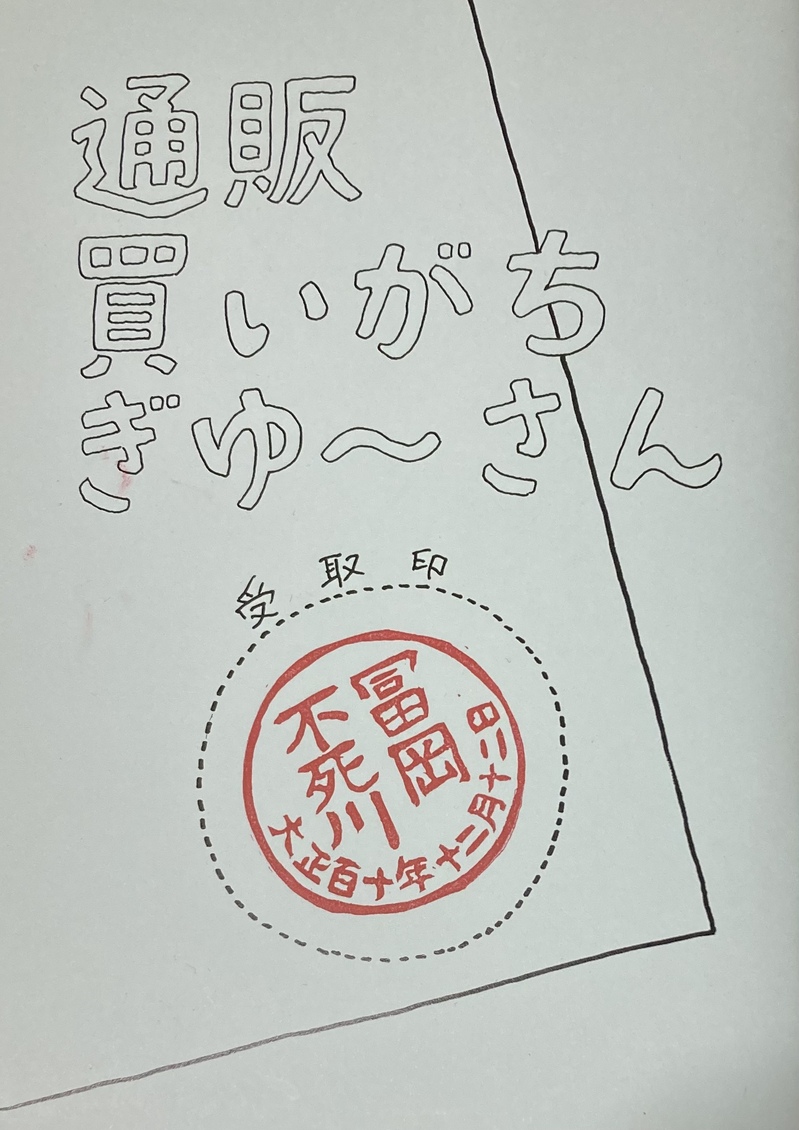 通販
買いがち
ぎゆ〜さん
受取印
冨岡
不死川
大正百十年十二月十二日